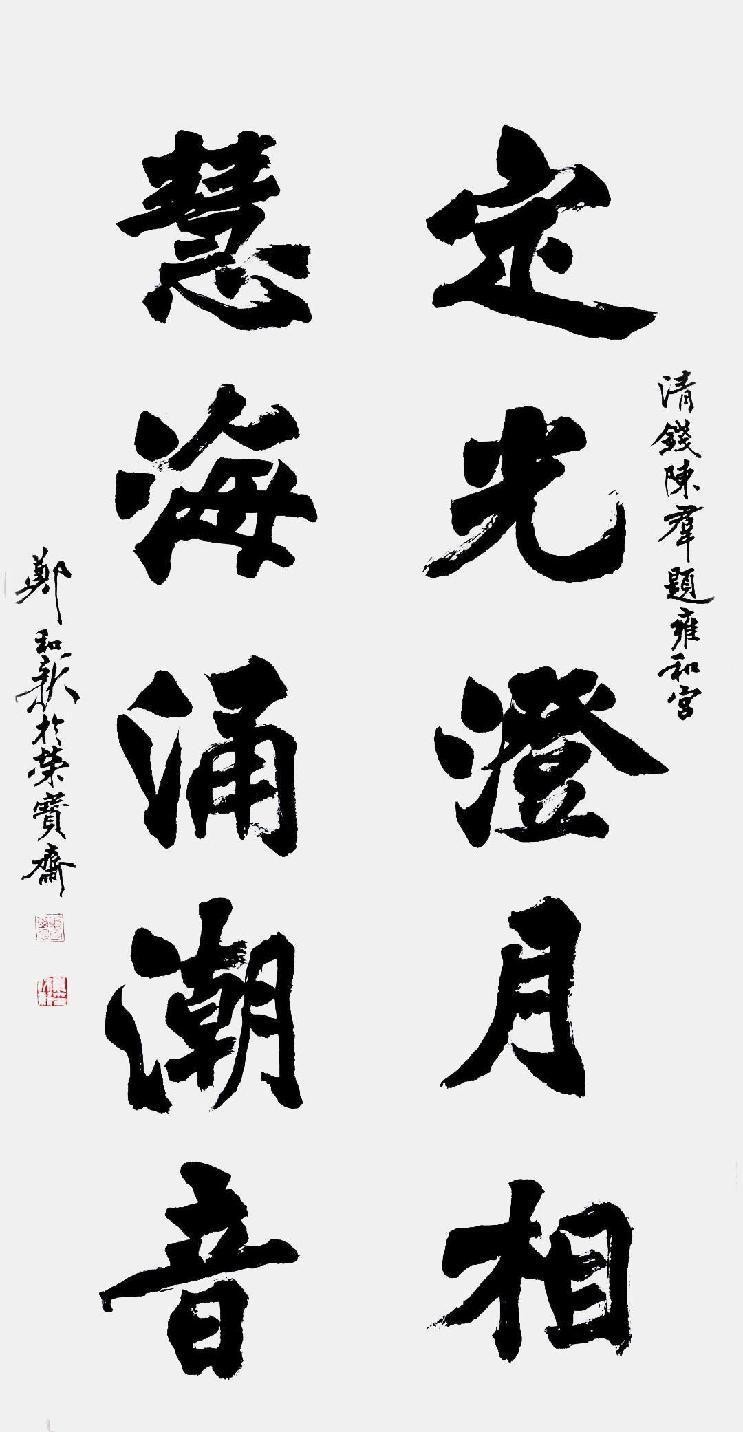 清錢陳羣題雍和宮
定光澄月相
慧海涌潮音
鄭和新於榮寶齋